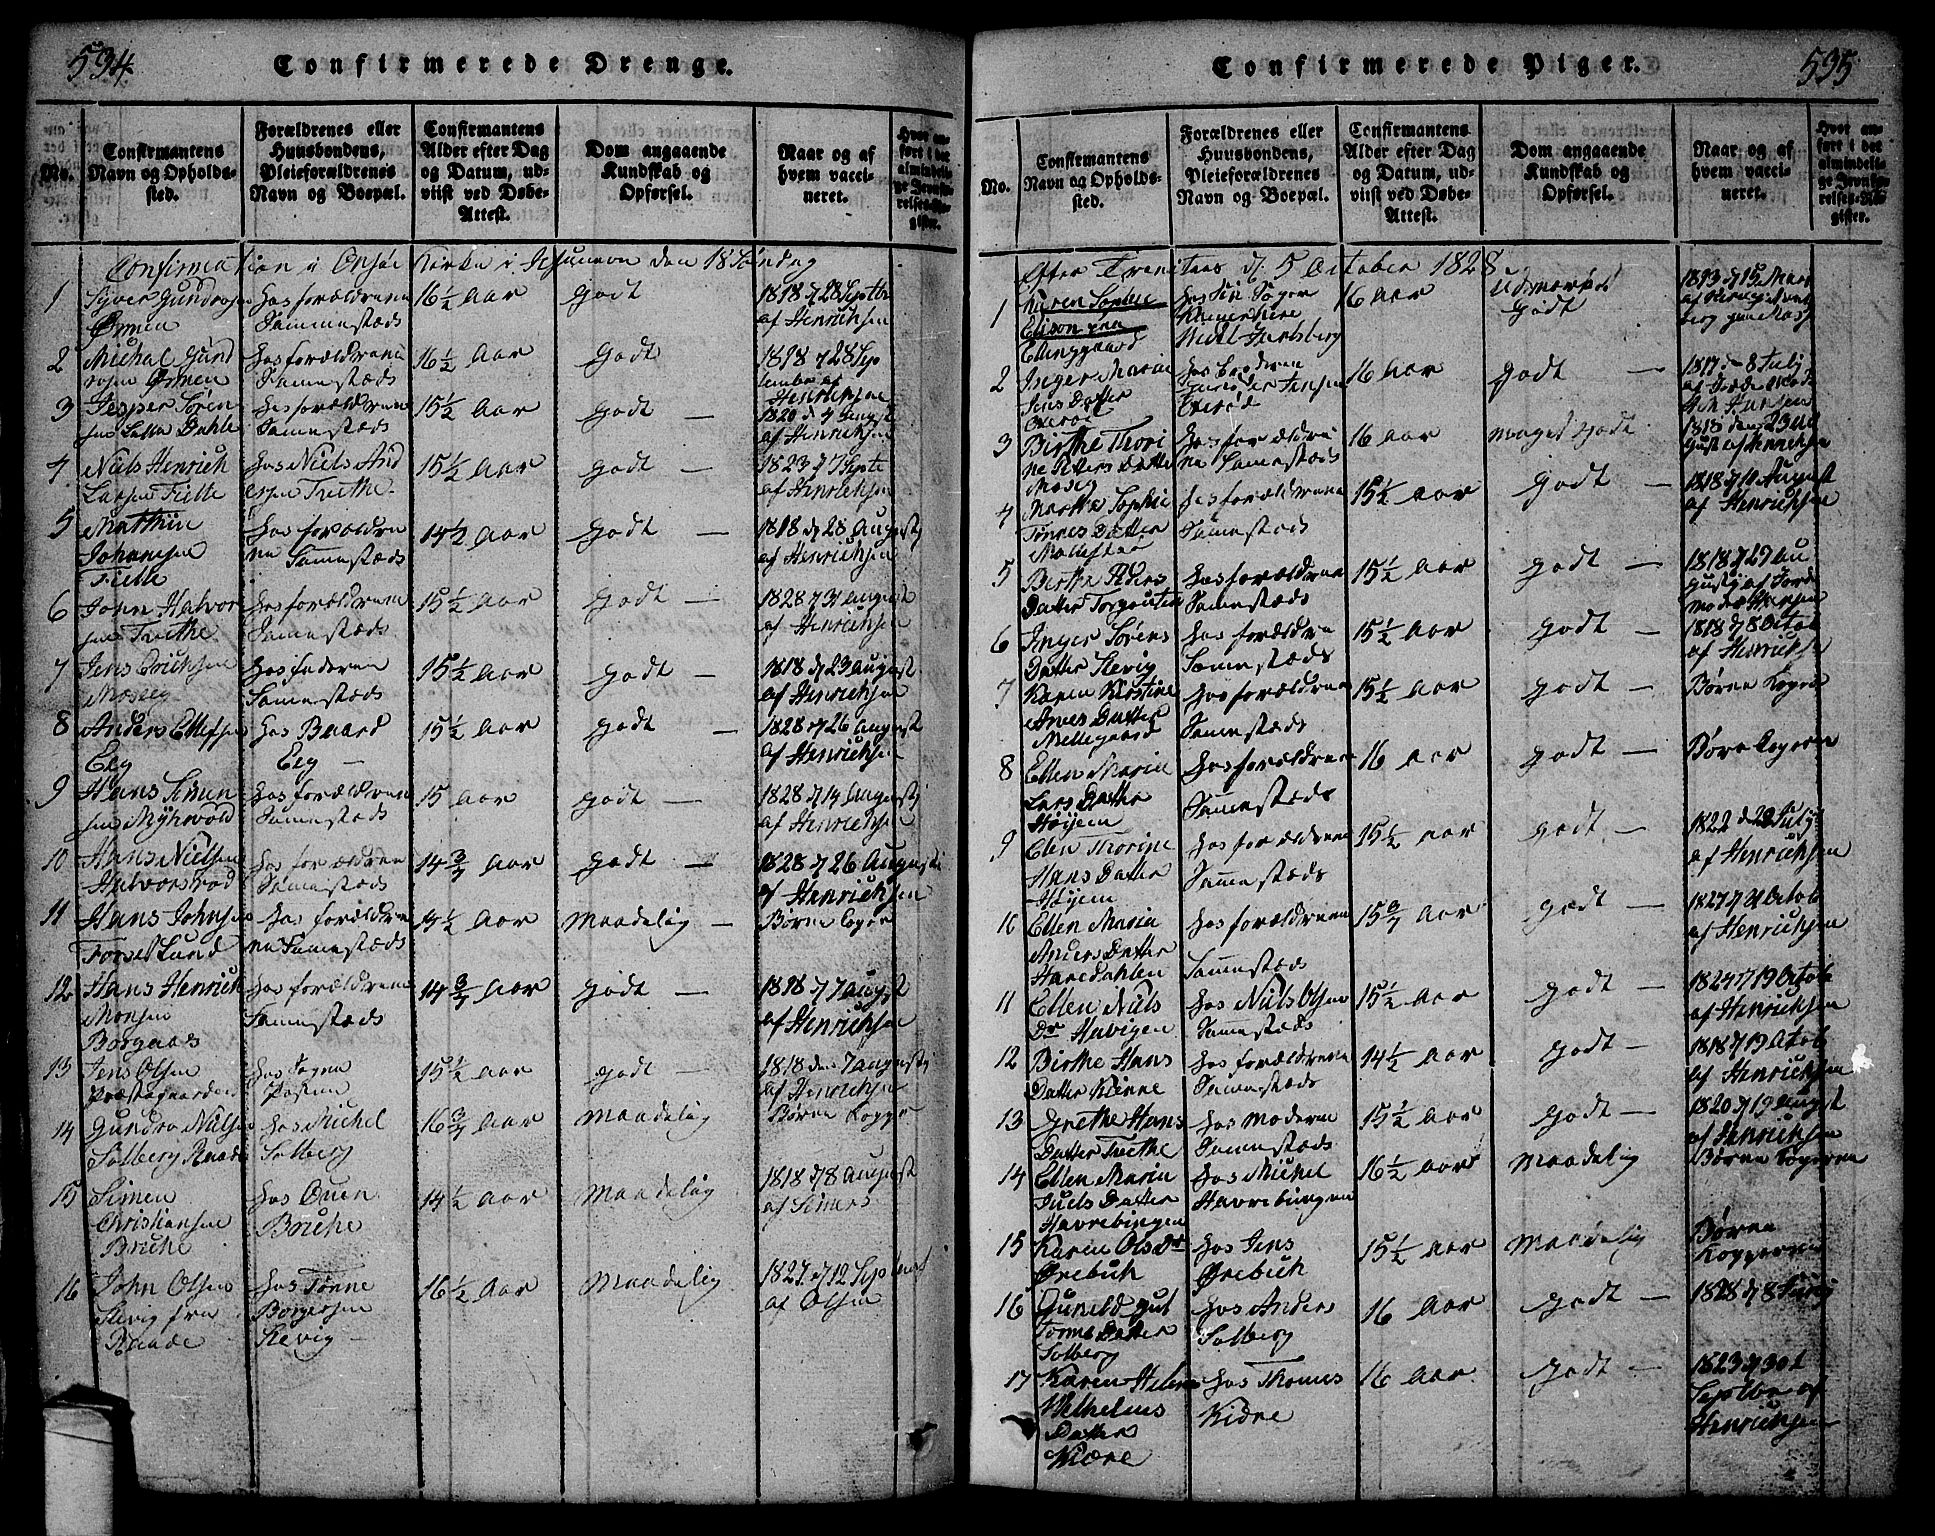 534
Confirmerede Drenge.
No.
Confirmantens Navn og Opholds-sted.
Forældrenes eller Huusbondens, Pleieforældrenes Navn og Boepæl.
Confirmantens Alder efter Dag og Datum, ud-viist ved Døbe-Attest.
Dom angaaende Kundskab og Opførsel.
Naar og af hvem vacci-neret.
Hvor an-ført i det almindeli-ge Jevnfø-relses-Re-gister.
Confirmation i Onsøe Kirke i den 18 Søndag
1 Syver Gundersen Ørmen
hos forældrene Sammestæds
16½ Aar
Godt
1818 d 28 Septbr af Henrichsen
2 Michal Gundersen Ørmen
hos forældrene Sammestæds
16½ Aar
Godt
1818 d 28 September af Henrichsen
3 Jesper Sørensen Dahle
hos forældrene Sammestæds
15½ Aar
Godt —
1820 d 4 August af Henrichsen
4 Niels Henrich Larsen Tiette
hos Niels Andersen Træthe
15½ Aar
Godt —
1823 d 7 Septe af Henrichsen
5 Mathiin Johansen Tiette
hos forældrene Sammestæds
14½ Aar
Godt —
1818 d 28 Augustj af Henrichsen
6 John Halvorsen Træthe
hos forældrene Sammestæds
15½ Aar
Godt —
1828 d August af Henrichsen
7 Jens Erichsen Mosseg
hos faderen Sammestæds
15½ Aar
Godt —
1818 d 23 August af Henrichsen
8 Anders Ellefsen Eeg
hos Baard Eeg —
15½ Aar
Godt —
1828 d 26 August af Henrichsen
9 Hans Simensen Myhrvold
hos forældrene Sammestæds
15 Aar
Godt —
1828 d 14 Augustj af Henrichsen
10 Hans Nielsen Halvorsrød
hos forældrene Sammestæds
14¾ Aar
Godt —
1828 d 26 Augusti af Henrichsen
11 Hans Johnsen Torsekund
hos forældrene Sammestæds
14½ Aar
Maadelig —
Børne
12 Hans Henrich Monsen Borgaas
hos forældrene Sammestæds
14¾ Aar
Godt —
1818 d 7 August af Henrichsen
13 Jens Olsen Præstegaarden
hos
15½ Aar
Godt —
1818 den 7 Augustj af Henrichsen
14 Gundro Nielsen Solberg Raade
hos Michel Solberg
16¾ Aar
Maadelig
Børne Kopper
15 Simen Christiansen Briche
hos Briche
14½ Aar
Maadelig
1818 d 8 August af Simers
16 John Olsen Slevig fra Raade
hos Tønne Borgersen Slevig —
16½ Aar
Maadelig
1827 d 12 September af Olsen
535
Confirmerede Piger.
No.
Confirmantens Navn og Opholds-sted.
Forældrenes eller Huusbondens, Pleieforældrenes Navn og Boepæl.
Confirmantens Alder efter Dag og Datum, ud-viist ved Døbe-Attest.
Dom angaaende Kundskab og Opførsel.
Naar og af hvem vacci-neret.
Hvor an-ført i det almindeli-ge Jevnfø-relses-Re-gister.
Efter Trenitas d. 5 October 1828
1 Maren Sophie Elison paa Elinggaard
hos
16 Aar
Udmærket Godt
1813 d 15 Marts af
2 Inger Maria Jens Datter
hos Jensen
16 Aar
Godt —
1817 d 8 Julij af Jorde Moder Hansen
3 Birthe Thorine Peters Datter Mosseg
hos forældrene Sammestæds
16 Aar
Maget Godt
1818 den 23 August af Henrichsen
4 Marthe Sophie Tønnes Datter
hos forældrene Sammestæds
15½ Aar
Godt —
1818 d 10 August af Henrichsen
5 Berthe Peders Datter Torgouten
hos forældrene Sammestæds
15½ Aar
Godt —
1818 d 29 Augustj af Jorde moder Hansen
6 Inger Sørens Datter Slevig
hos forældrene Sammestæds
15½ Aar
Godt —
1818 d 8 Octob af Henrichsen
7 Karen Kirstine Arnes Datter Mellegaard
hos forældrene Sammestæds
15½ Aar
Godt —
Børne Kopper
8 Ellen Maria Lars Datter Høyem
hos forældrene Sammestæds
16 Aar
Godt —
Børe
9 Elen Thorine Hans Datter Høyem
hos forældrene Sammestæds
15½ Aar
Godt —
1822 d Julij af Henrichsen
10 Ellen Maria Anders Datter Haredahlen
hos forældrene Sammestæds
15¾ Aar
Godt —
1827 d Octob af Henrichsen
11 Ellen Niels Dr
hos Niels Olsen Sammestæds
15½ Aar
Godt —
1824 d 19 Octob af Henrichsen
12 Birthe Hans Datter Kinne
hos forældrene Sammestæds
14½ Aar
Godt —
1818 d 19 Octob af Henrichsen
13 Grethe Hans Datter Træthe
hos Moderen Sammestæds
15½ Aar
Godt —
1820 d 19 August af Henrichsen
14 Ellen Maria Juels Datter Havrebingen
hos Michel Havrebingen
16½ Aar
Maadelig
Børne Kopperne
15 Karen Ols Dr Ørebæk
hos Jens Ørebæk
15½ Aar
Maadelig
Børne Kopperne
16 Tønnes Datter Solberg
hos Anders Solberg
16 Aar
Godt —
1828 d 8 Julij
17 Karen Helene Wilhelms Datter Kiære
hos Thomas Kiære
16 Aar
Godt —
1823 d Septbr af Henrichsen